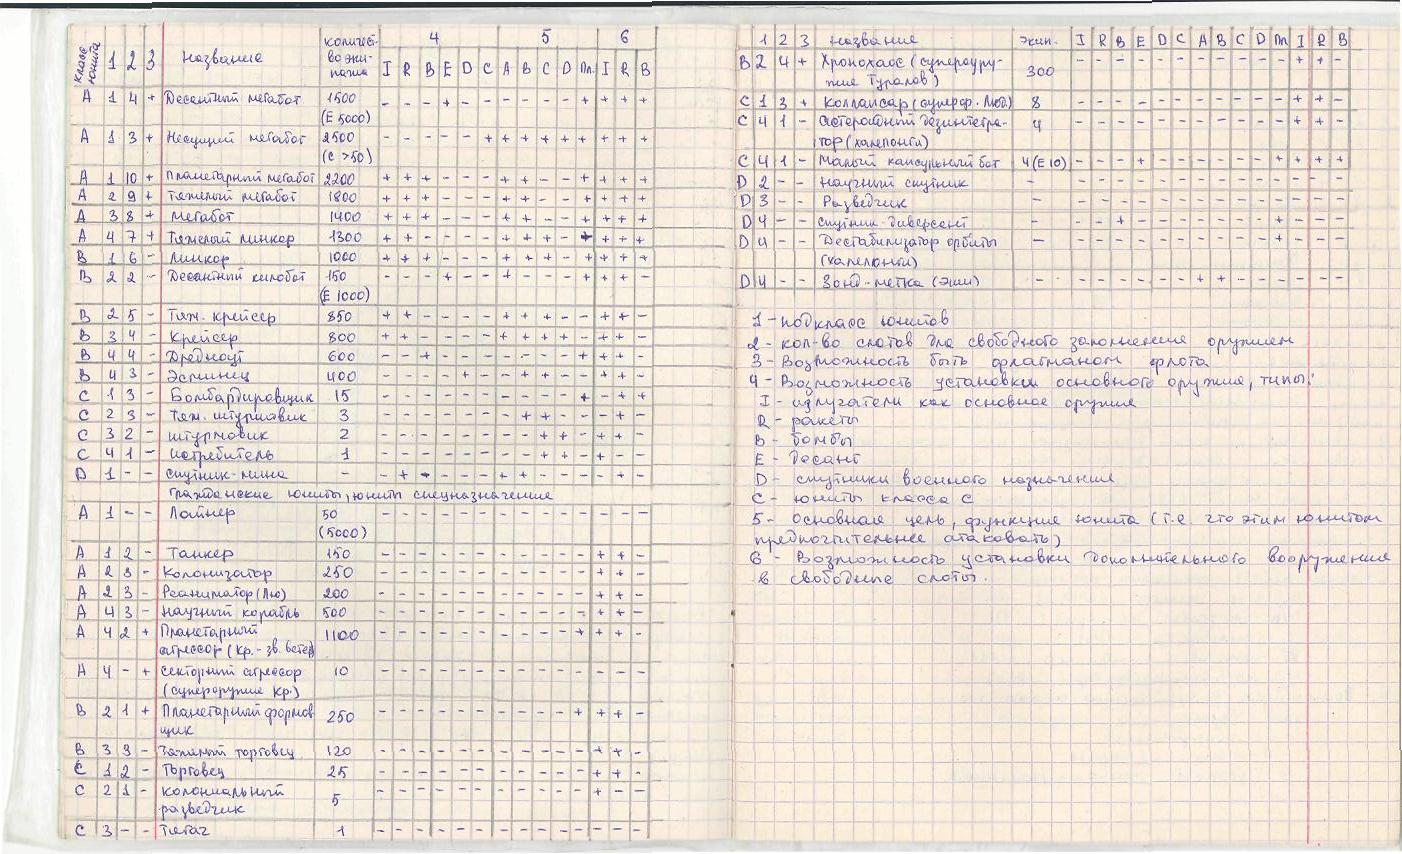 класс юнита 1 2 3 Название количество экипажа 4 5 6
I R B E D C A B C D Пл. I R B
A 1 4 + Десантный мегабот 1500 - - - + - - - - - - + + + +
(E 5000)
A 1 3 + Несущий мегабот 2500 - - - - - + + + + + + + + +
(C >50)
A 1 10 + Планетарный мегабот 2200 + + + - - - + + - - + + + +
A 2 9 + Тяжелый мегабот 1800 + + + - - - + + - - + + + +
A 3 8 + Мегабот 1400 + + + - - - + + - - + + + +
A 4 7 + Тяжелый линкор 1300 + + - - - - + + + - + + + +
B 1 6 - Линкор 1000 + + + - - - + + + - + + + -
B 2 2 - Десантный килобот 150 - - - + - - + - - - + + + -
(E 1000)
B 2 5 - Тяж. крейсер 850 + + - - - - + + + - - + + -
B 3 4 - Крейсер 800 + + - - - - + + + + - + + -
B 4 4 - Дредноут 600 - - + - - - - - - - + + + -
B 4 3 - Эсминец 400 - - - - + - - + + - - + + -
C 1 3 - Бомбардировщик 15 - - - - - - - - - - + - + +
C 2 3 - Тяж. штурмовик 3 - - - - - - - + + - - - + -
C 3 2 - штурмовик 2 - - - - - - - - + + - + + -
C 4 1 - истребитель 1 - - - - - - - - + + - + - -
D 1 - - спутник-мина - - + + - - - + + - - - - + -
гражданские юниты, юниты спецназначения
A 1 - - Лайнер 50 - - - - - - - - - - - - - -
(5000)
A 1 2 - Танкер 150 - - - - - - - - - - - + + -
A 2 3 - Колонизатор 250 - - - - - - - - - - - + + -
A 2 3 - Реаниматор (Лю) 200 - - - - - - - - - - - + + -
A 4 3 - научный корабль 500 - - - - - - - - - - - + + -
A 4 2 + Планетарный 1100 - - - - - - - - - - + + + -
агрессор (Кр.- зв. ветер)
A 4 - + секторный агрессор 10 - - - - - - - - - - - - - -
(супероружие Кр.)
B 2 1 + Планетарный формов 250 - - - - - - - - - - + + + -
щик
B 3 3 - Тяжелый торговец 120 - - - - - - - - - - - + + -
C 1 2 - Торговец 25 - - - - - - - - - - - + + -
C 2 1 - колониальный 5 - - - - - - - - - - - + - -
разведчик
C 3 - - Тягач 1 - - - - - - - - - - - - - -
1 2 3 название экип. I R B E D C A B C D Пл I R B
B 2 4 + Хронохаос (суперору- 300 - - - - - - - - - - - + + -
жие Туралов)
C 1 3 + Коллапсар (суперор. Лю) 8 - - - - - - - - - - - + + -
C 4 1 - астероидный дезинтегра- 4 - - - - - - - - - - - + + -
тор (халепонги)
C 4 1 - Малый капсульный бот 4 (E 10) - - - + - - - - - - + + + +
D 2 - - научный спутник - - - - - - - - - - - - - - -
D 3 - - Разведчик - - - - - - - - - - - - - - -
D 4 - - спутник-диверсант - - - + - - - - - - - + - - -
D 4 - - Дестабилизатор орбиты - - - - - - - - - - - + - - -
(халепонги)
D 4 - - Зонд-метка (Эши) - - - - - - - + + - - - - - -
1 - подкласс юнитов
2 - кол-во слотов для свободного заполнения оружием
3 - Возможность быть флагманом флота
4 - Возможность установки основного оружия, типы:
I - излучатели как основное оружие
R - ракеты
B - бомбы
E - десант
D - спутники военного назначения
C - юниты класса C
5 - основная цель, функция юнита (т.е. что этим юнитом
предпочтительнее атаковать)
6 Возможность установки дополнительного вооружения
в свободные слоты.